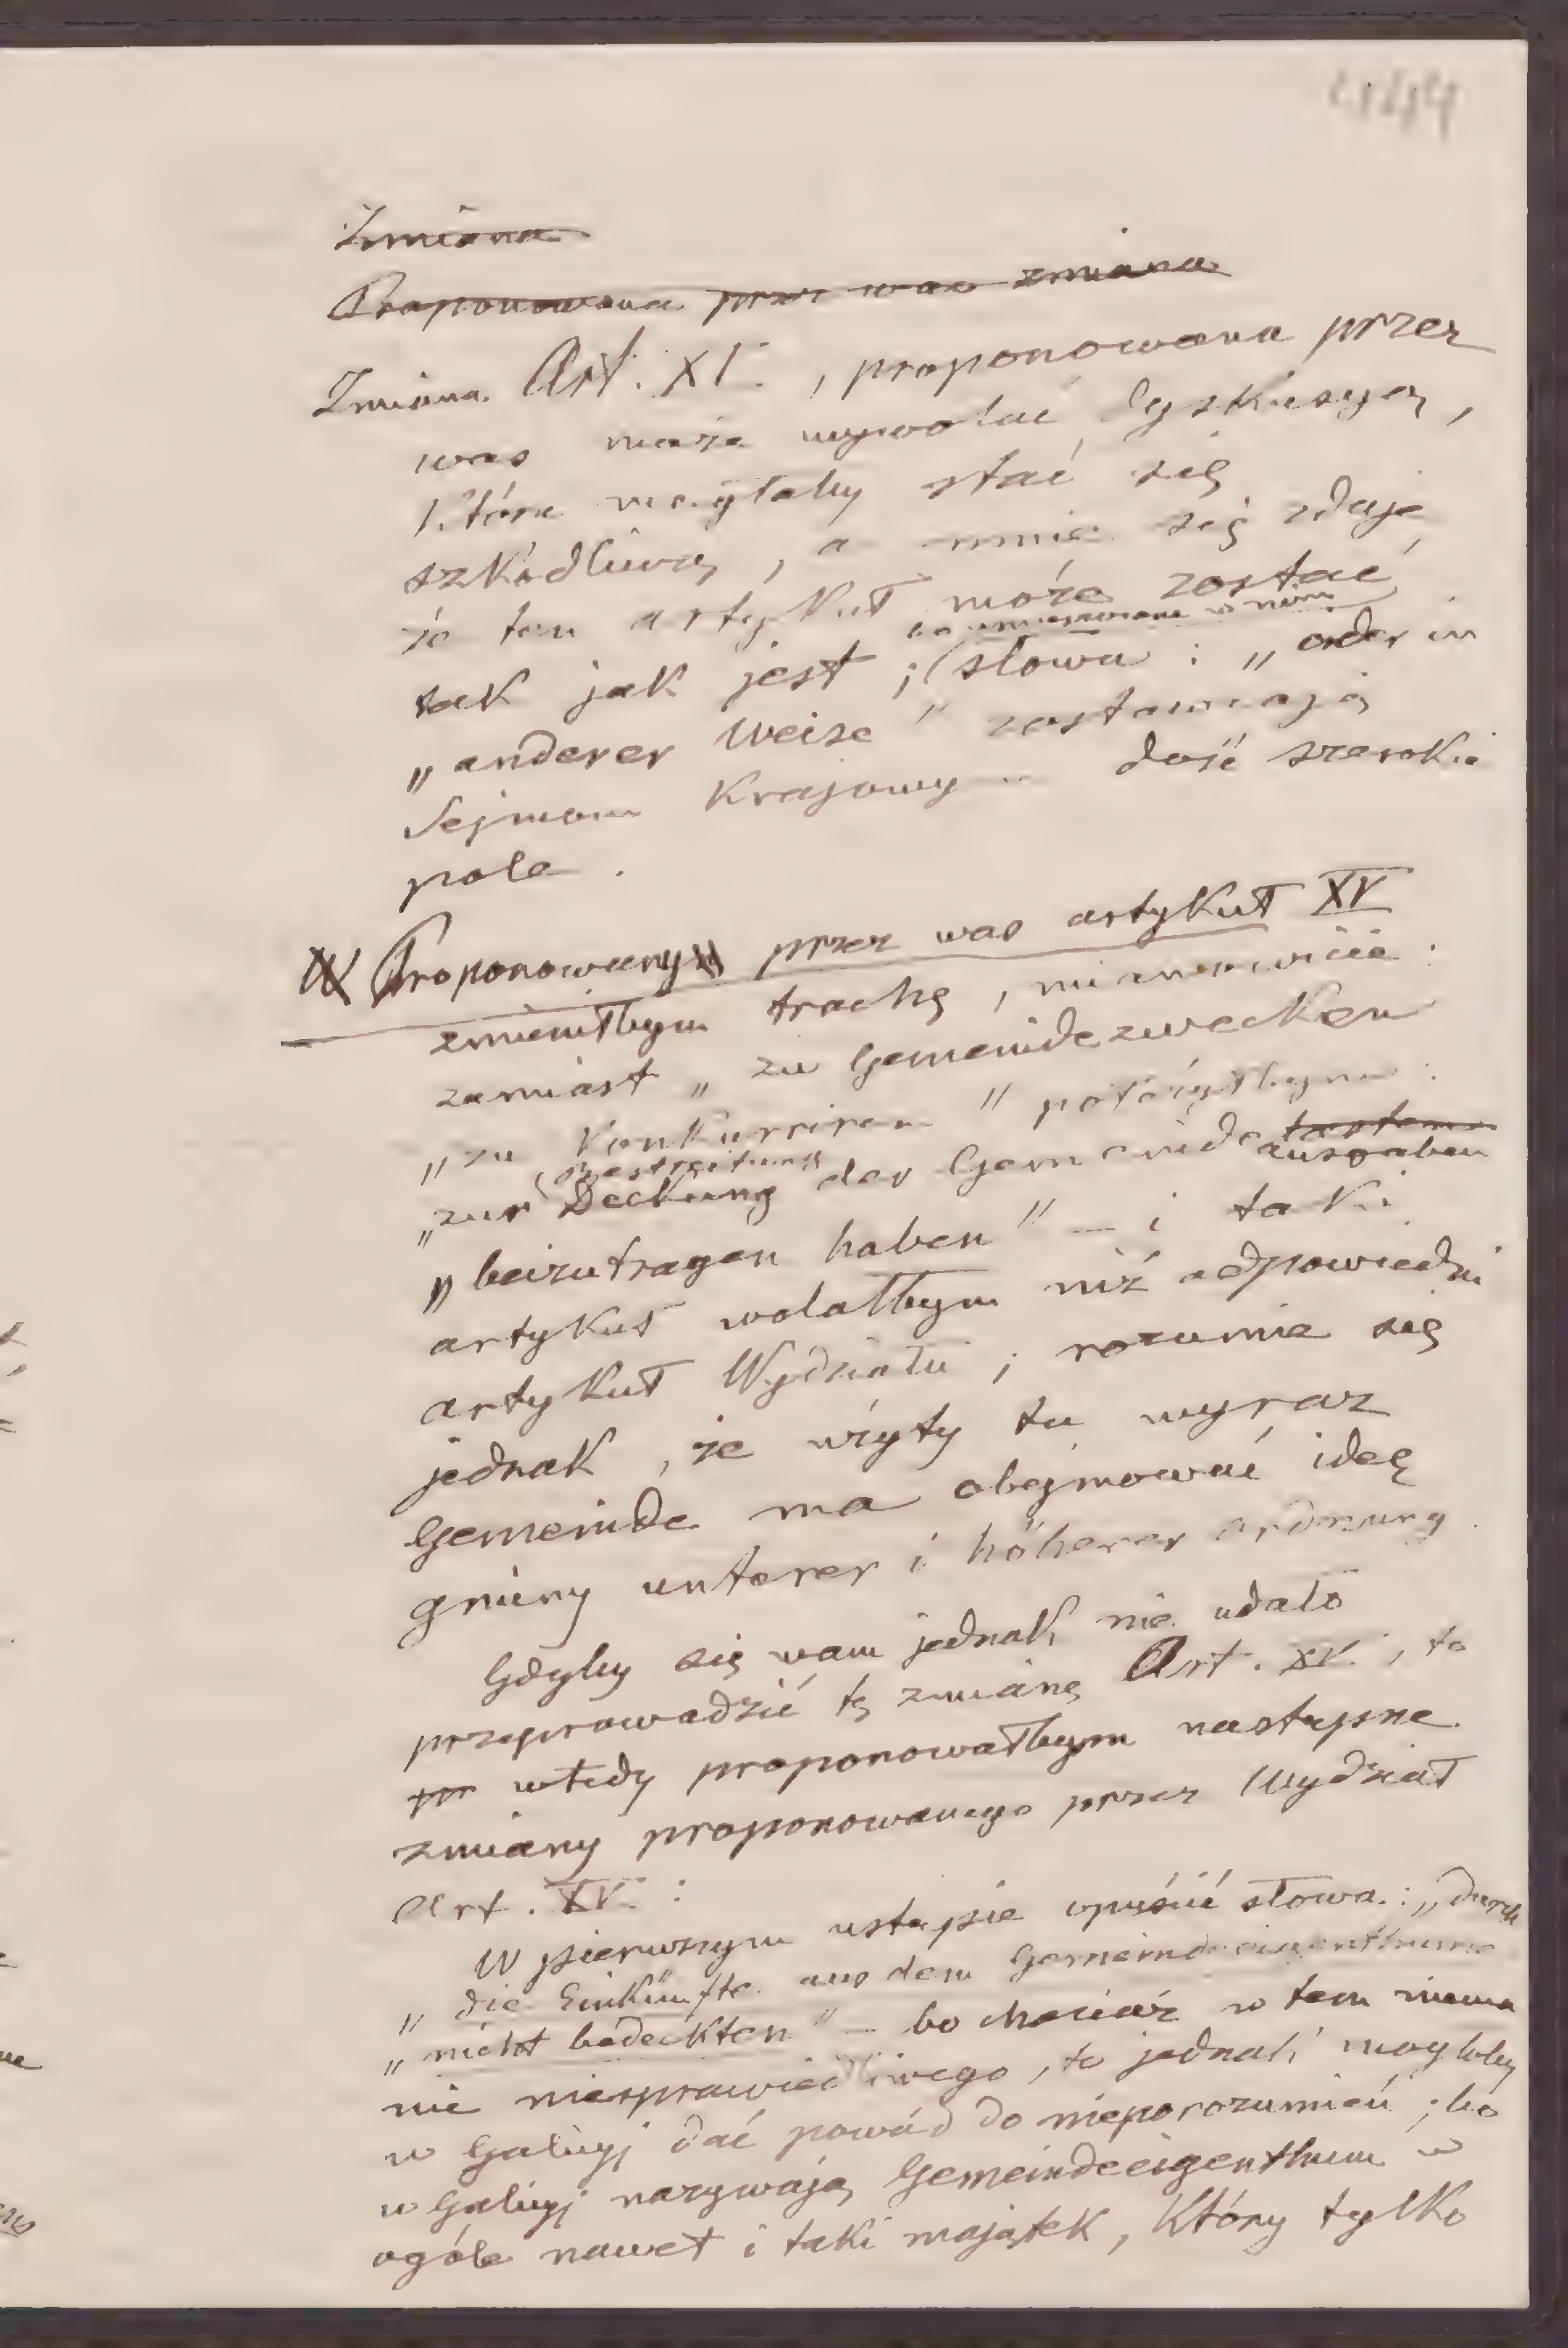 Zmiana
Proponowana przez was zmiana
Zmiana Art. XI., proponowana przez
was może wywołać dyskusyę,
która mogłaby stać się
szkodliwą, a mnie się zdaje
że ten artykuł może zostać
bo umieszczone w nim
tak jak jest; słowa: „oder in
„anderer Weise" zostawiają
Sejmom Krajowym dość szerokie
pole.
W Proponowany przez was artykuł XV
zmieniłbym trochę, mianowicie:
zamiast „zu Gemeindezwecken
„zu konkurriren" położyłbym:
(Bestreitung lasten
„zur Deckung der Gemeindeausgaben
„beizutragen haben" — i taki
artykuł wolałbym niż odpowiedni
artykuł Wydziału; rozumie się
jednak, że użyty tu wyraz
Gemeinde ma obejmować ideę
gminy unterer i höherer Ordnung.
Gdyby się wam jednak nie udało
przeprowadzić tę zmianę Art. XV., to
pr wtedy proponowałbym następne
zmiany proponowanego przez Wydział
Art. XV:
W pierwszym ustępie opuścić słowa: „durch
„die Einkünfte aus dem Gemeindeeigenthume
„nicht bedeckten" — bo chociaż w tem niema
nic niesprawiedliwego, to jednak mogłoby
w Galicyj dać powód do nieporozumień; bo
w Galicyj nazywają Gemeindeeigenthum w
ogóle nawet i taki majątek, który tylko